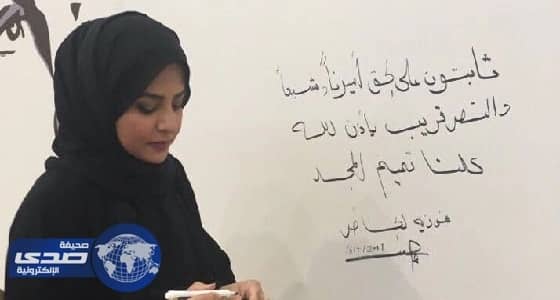 ثابتون على الحق أميراً وشعباً
والنصر قريب بإذن الله
كلنا تميم المجد
فوزية
صحيفة
صدى
الإلكترونية